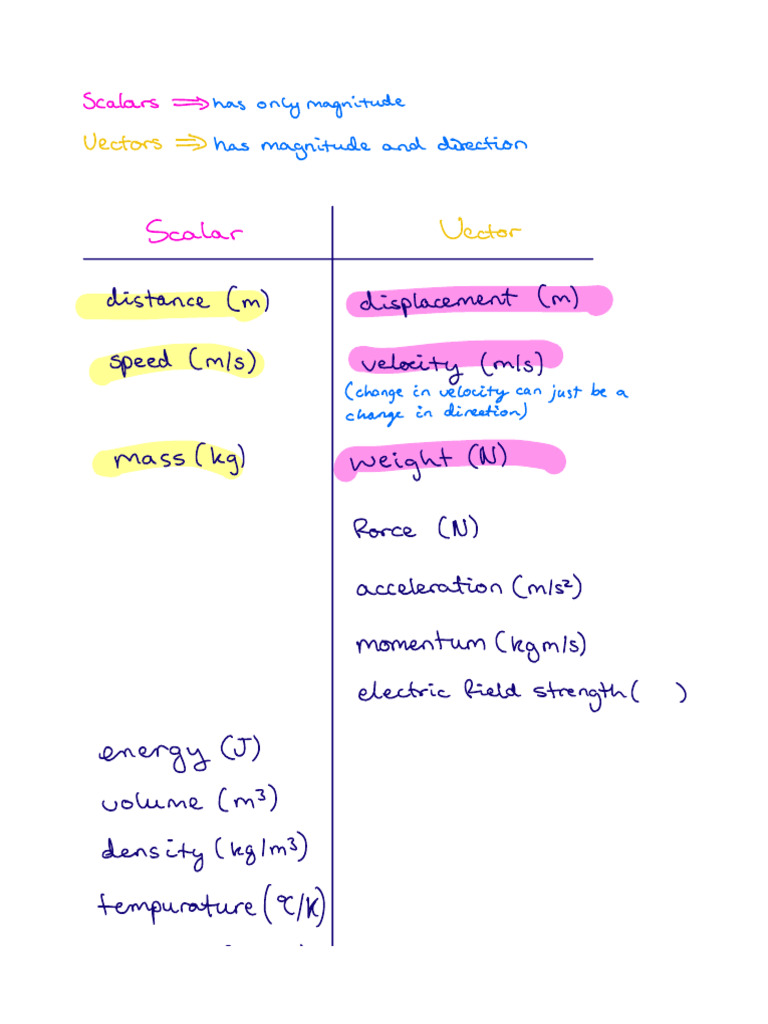 Scalars ⇒ has only magnitude
Vectors ⇒ has magnitude and direction
Scalar Vector
distance (m) displacement (m)
speed (m/s) velocity (m/s)
(change in velocity can just be a
change in direction)
mass (kg) weight (N)
Force (N)
acceleration (m/s²)
momentum (kgm/s)
electric field strength ( )
energy (J)
volume (m³)
density (kg/m³)
tempurature (°C/K)